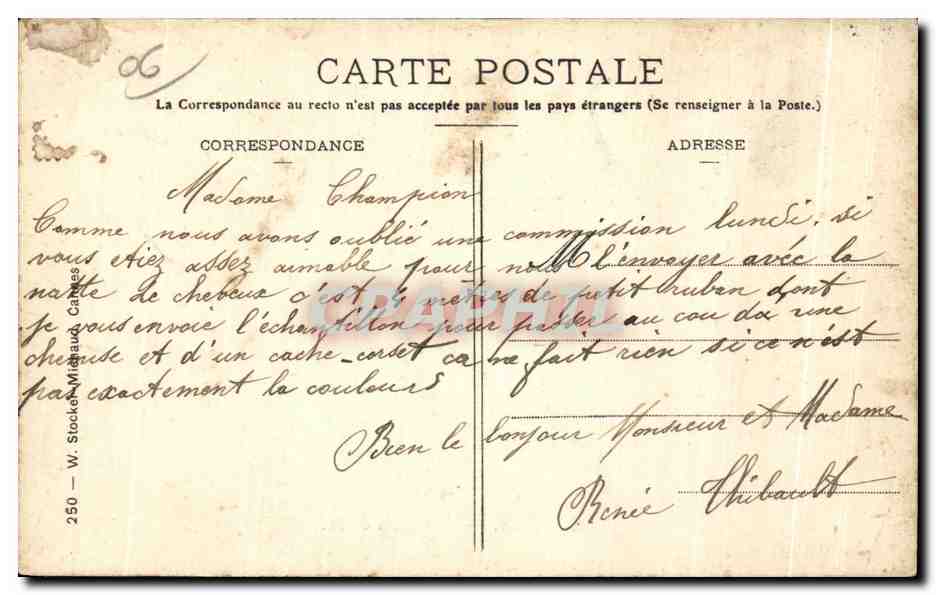 06
CARTE POSTALE
La Correspondance au recto n'est pas acceptée par tous les pays étrangers (Se renseigner à la Poste.)
CORRESPONDANCE
ADRESSE
Madame Champion
Comme nous avons oublié une commission lundi. si
vous etiez assez aimable pour nous l'envoyer avéc la
natte de chebeux c'est 4 mètres de petit ruban dont
je vous envoie l'échantillon pour passer au cou d'une
chemise et d'un cache-corset ça ne fait rien si ce n'ést
pas exactement la couleurs
Bien le bonjour Monsieur et Madame
Renée Thibault
250 — W. Stocker-Michaud, Cannes
CPAPHIL